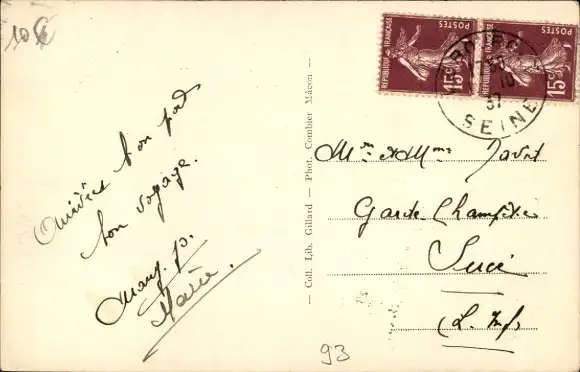 10€
Arrivées bon port
bon voyage.
Marg. p.
Marie.
— Coll. Lib. Gillard — Phot. Combier Mâcon —
REPUBLIQUE FRANÇAISE
POSTES
15c
REPUBLIQUE FRANÇAISE
POSTES
15c
10
37
SEINE
Mr et Mme
Garde Champêtre
Sucé
(L. Infre
93